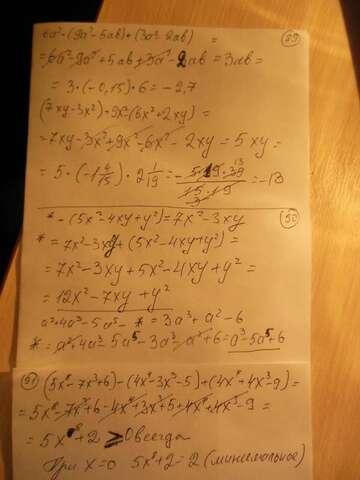 6a²-(9a²-5ab)+(3a²-2ab) = (89)
= 6a²-9a²+5ab+3a²-2ab = 3ab =
= 3·(-0,15)·6 = -2,7
(7xy-3x²)+9x²-(6x²+2xy) =
=7xy-3x²+9x²-6x²-2xy = 5xy =
= 5·(-1 4/15)·2 1/19 = - 5·19·39 13 / 15·19 3 = -13
* - (5x²-4xy+y²) = 7x²-3xy (90)
* = 7x²-3xy+(5x²-4xy+y²) =
= 7x²-3xy+5x²-4xy+y² =
= 12x²-7xy+y²
a²+4a³-5a⁵- * = 3a³+a²-6
* = a²+4a³-5a⁵-3a³-a²+6 = a³-5a⁵+6
91 (5x⁸-7x³+6)-(4x⁹-3x³-5)+(4x⁹+4x³-9) =
= 5x⁸-7x³+6-4x⁹+3x³+5+4x⁹+4x³-9 =
= 5x⁸+2 ≥0 всегда
При x=0 5x⁸+2=2 (минимальное)